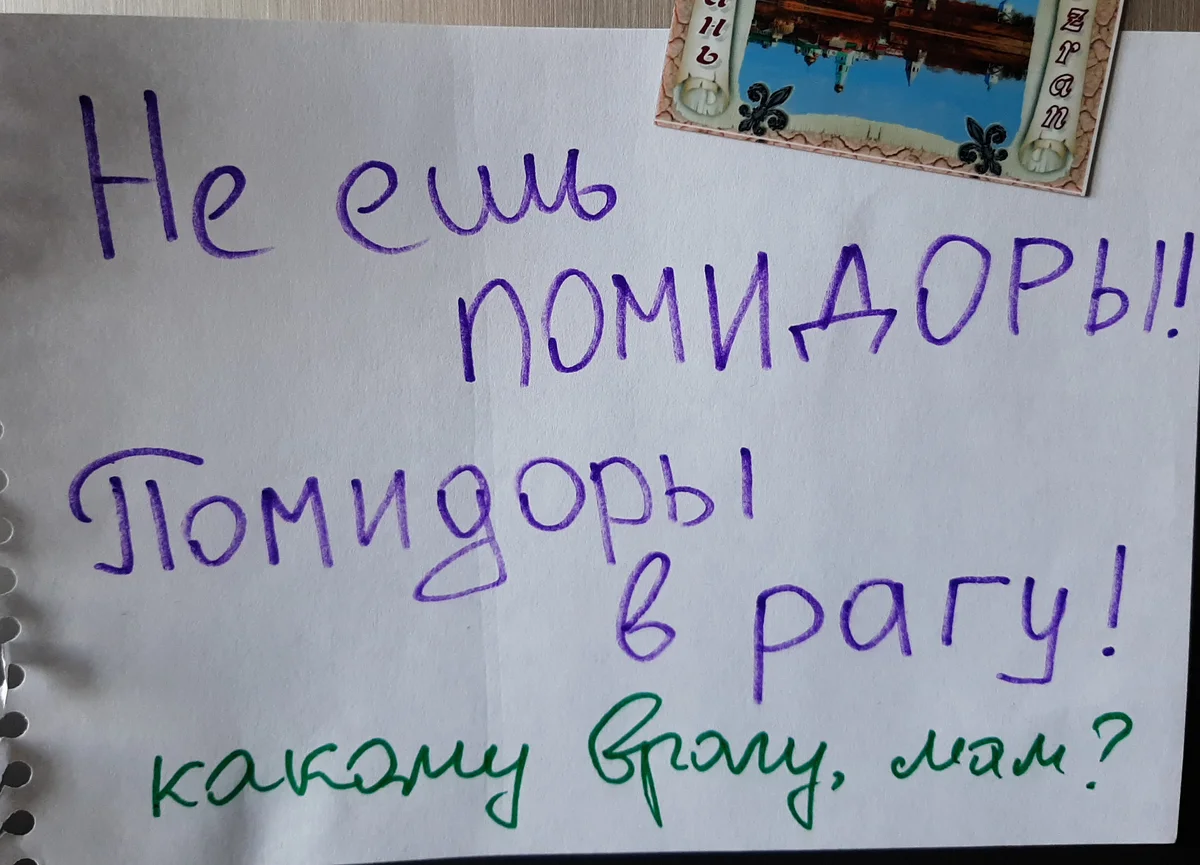 ань
zran
Не ешь
ПОМИДОРЫ!!
Помидоры
в рагу!
какому врагу, мам?